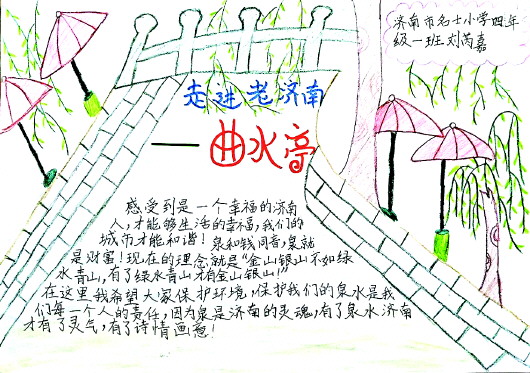 济南市名士小学四年
级一班刘芮嘉
走进老济南
—曲水亭
感受到是一个幸福的济南
人,才能够生活的幸福,我们的
城市才能和谐!泉和钱同音,泉就
是财富!现在的理念就是“金山银山不如绿
水青山,有了绿水青山才有金山银山!”
在这里我希望大家保护环境,保护我们的泉水是我
们每一个人的责任,因为泉是济南的灵魂,有了泉水济南
才有了灵气,有了诗情画意!